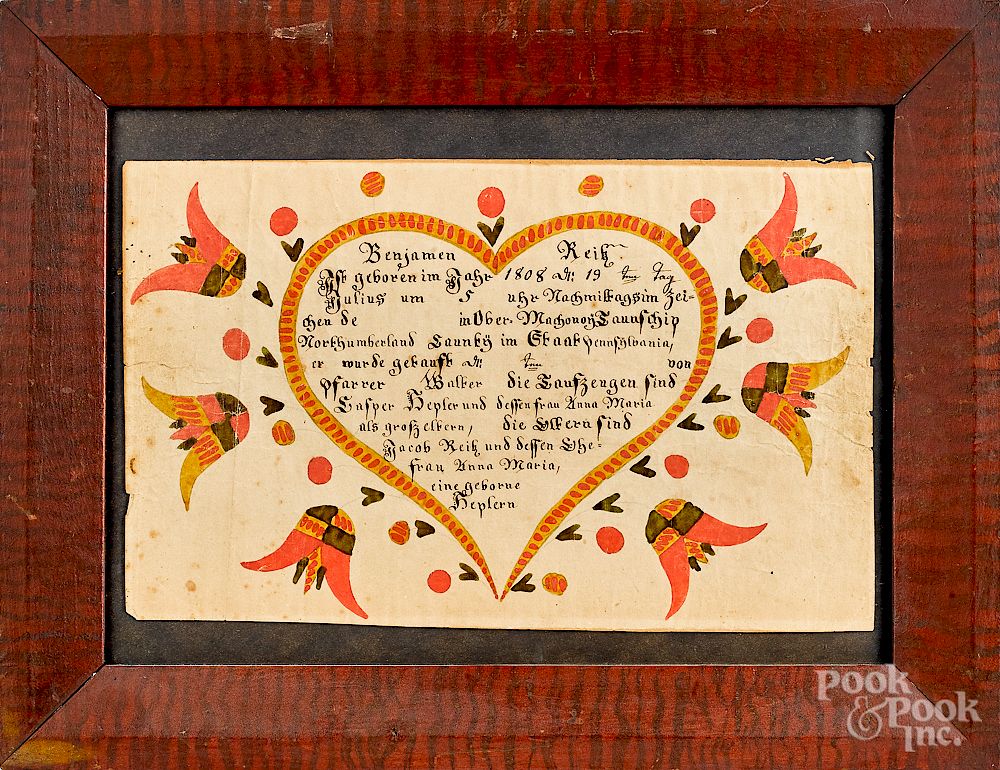 Benjamen Reitz
Ist geboren im Jahr 1808 de 19 ten Tag
Julius um 5 uhr Nachmittags im Zei-
chen de in Ober. Machonoy Taunschip
Northumberland Caunty im Staat Pennsylvania,
er wurde getauft de ten von
pfarrer Walker die Taufzeugen sind
Casper Hepler und dessen frau Anna Maria
als grosz eltern, die Eltern sind
Jacob Reitz und dessen Ehe-
frau Anna Maria,
eine geborne
Heplern
POOK
& POOK
INC.